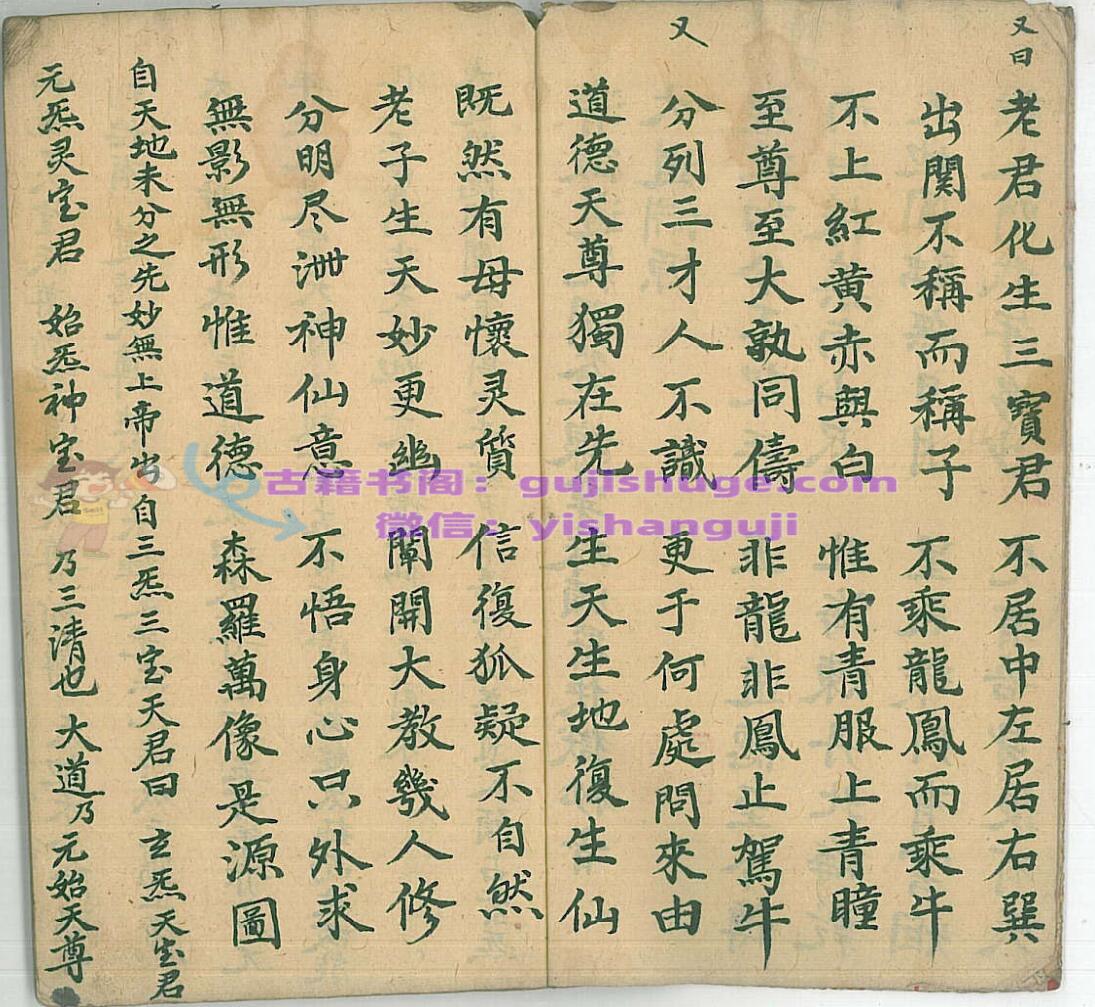 又曰
老君化生三寳君 不居中左居右巽
出関不稱而稱子 不乘龍鳳而乘牛
不上紅黄赤與白 惟有青服上青瞳
至尊至大孰同儔 非龍非鳳止駕牛
又
分列三才人不識 更于何處問來由
道德天尊獨在先 生天生地復生仙
既然有母懷灵質 信復狐疑不自然
老子生天妙更幽 闡開大教幾人修
分明尽泄神仙意 不悟身心只外求
無影無形惟道德 森羅萬像是源圖
自天地未分之先妙無上帝出自三炁三宝天君曰 玄炁天宝君
元炁灵宝君 始炁神宝君 乃三清也 大道乃元始天尊
古籍书阁：gujishuge.com
微信：yishanguji